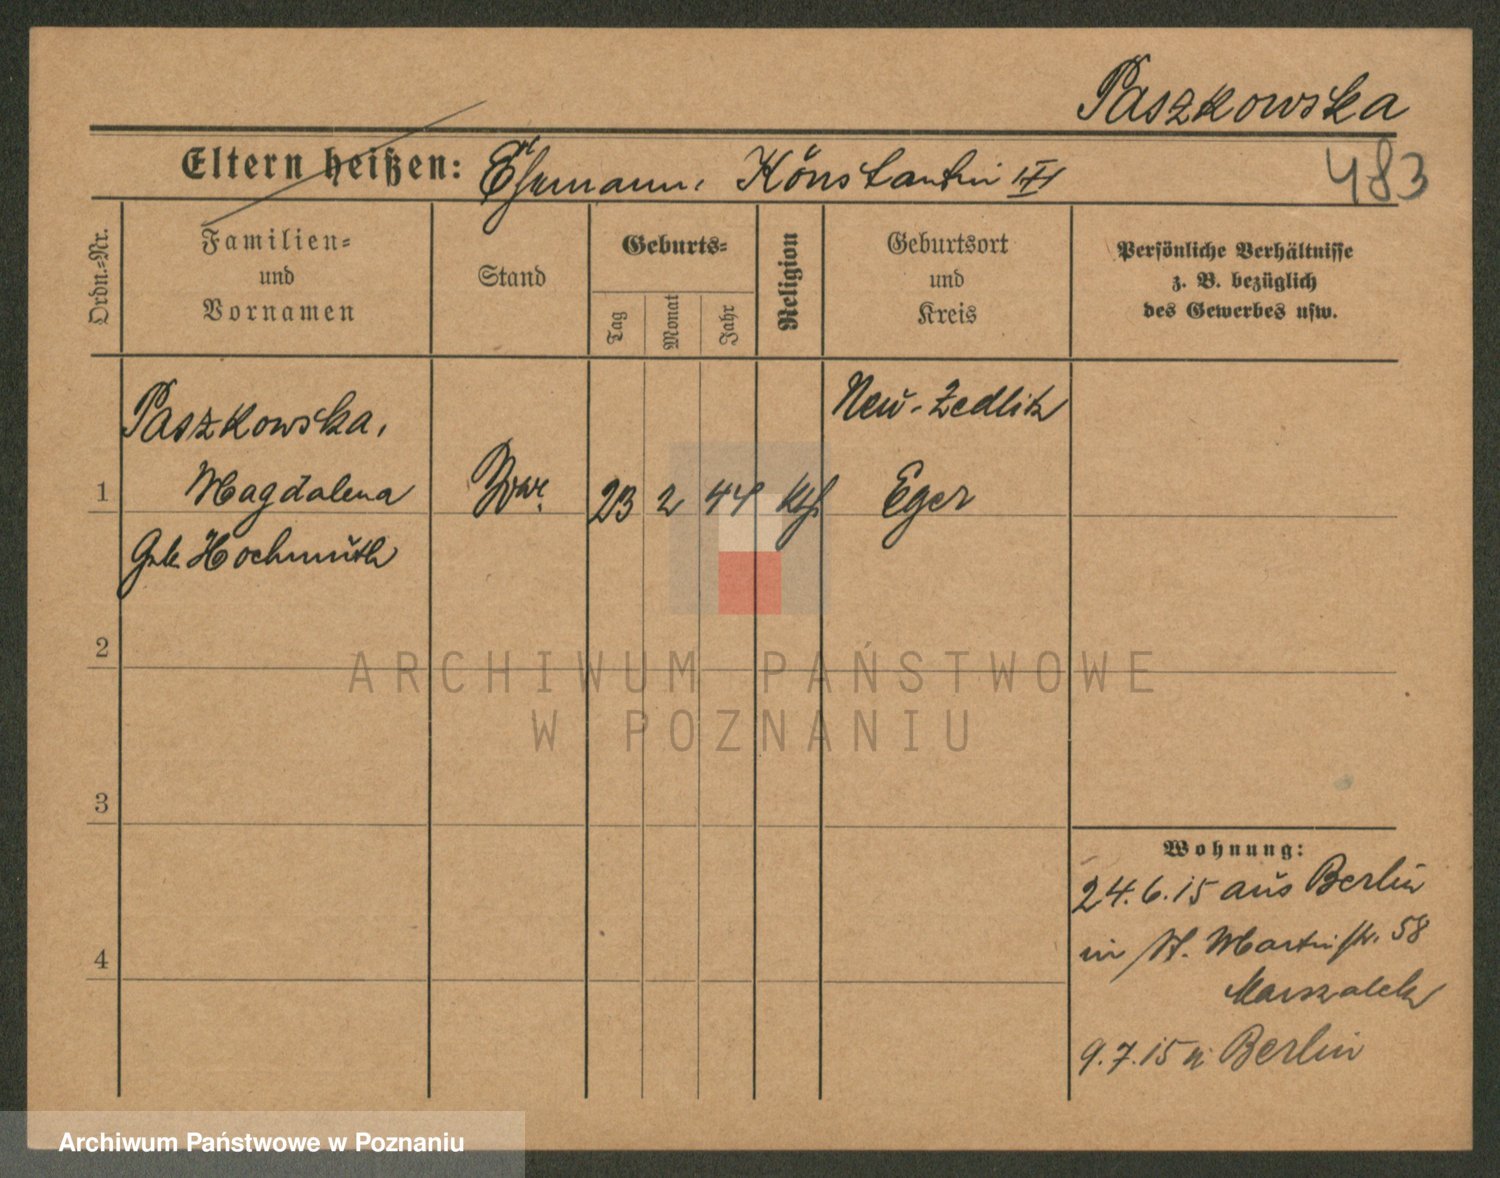 Paszkowska
483
Eltern heißen: Ehemann, Konstantin
Ordn.-Nr.
Familien-
und
Vornamen
Stand
Geburts-
Tag
Monat
Jahr
Religion
Geburtsort
und
Kreis
Persönliche Verhältnisse
z. B. bezüglich
des Gewerbes usw.
Paszkowska,
Neu-Zedlitz
1 Magdalena Wwe. 23 2 44 kth. Eger
Geb. Hochmuth
2
3
4
Wohnung:
24.6.15 aus Berlin
in St. Martinstr. 58
Marszalek
9.7.15 n. Berlin
ARCHIWUM PAŃSTWOWE
W POZNANIU
Archiwum Państwowe w Poznaniu